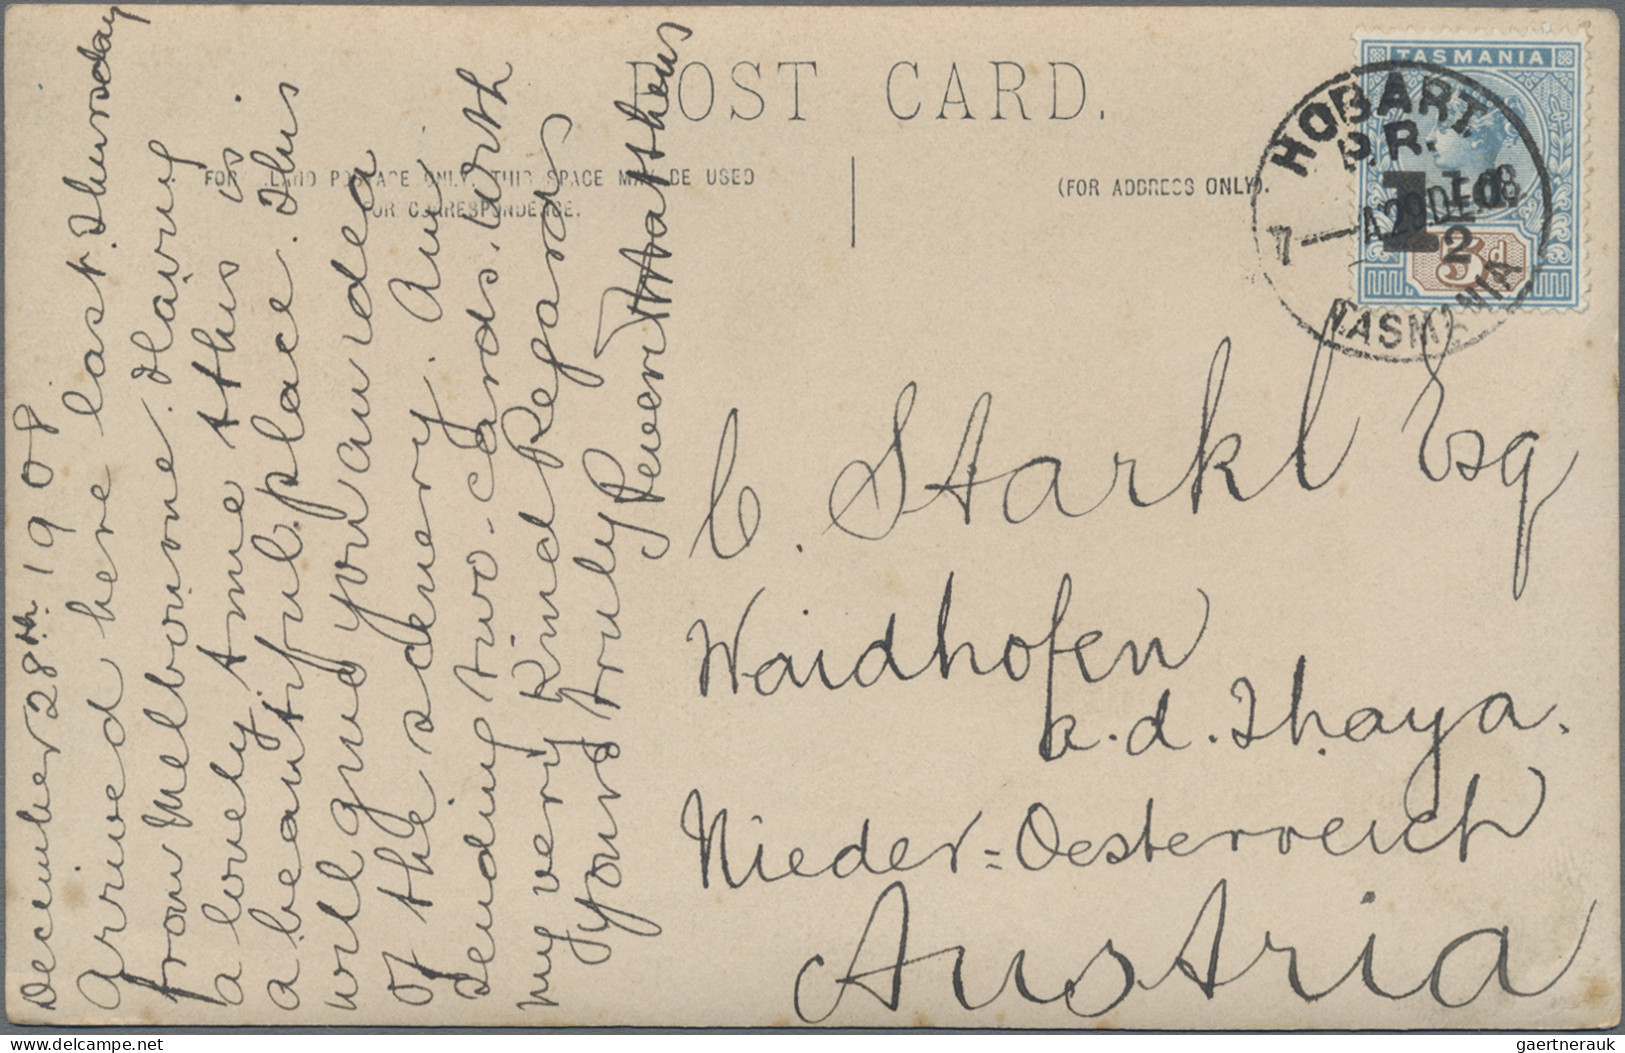 POST CARD.
FOR INLAND POSTAGE ONLY, THIS SPACE MAY BE USED
FOR CORRESPONDENCE.
(FOR ADDRESS ONLY).
TASMANIA
HOBART
P.R.
7 A 29 DE 08
TASMANIA
1 1/2 d
5d
December 28th 1908
Arrived here last Thursday
from Melbourne. Having
a lovely time this is
a beautiful place. This
will give you an idea
of the scenery. Am
sending two cards. With
my very Kind Regards
Yours truly
Matthews
C. Starkl Esq
Waidhofen
a.d. Thaya.
Nieder=Oesterreich
Austria
gaertnerauk